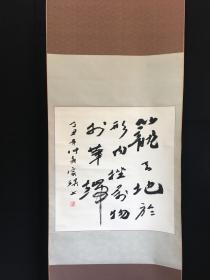 籠天地於
形内挫萬物
於筆端
丁丑年仲夏